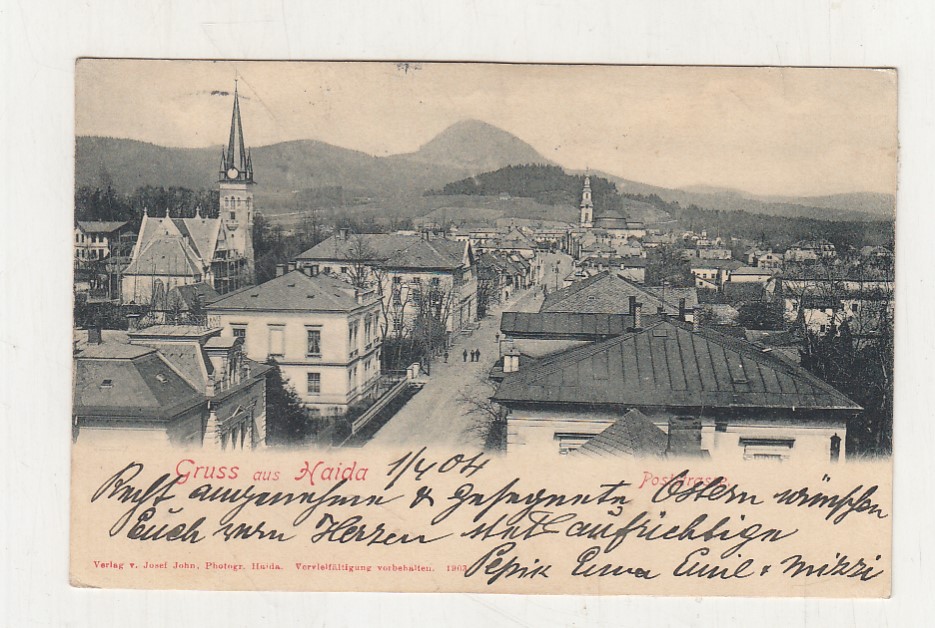 Gruss aus Haida 1/4 04 Poststrasse.
Recht angenehme & gesegnete Ostern wünschen
Euch vom Herzen stets aufrichtige
Pepik Emma Emil & Mizzi
Verlag v. Josef John, Photogr. Haida. Vervielfältigung vorbehalten. 1903